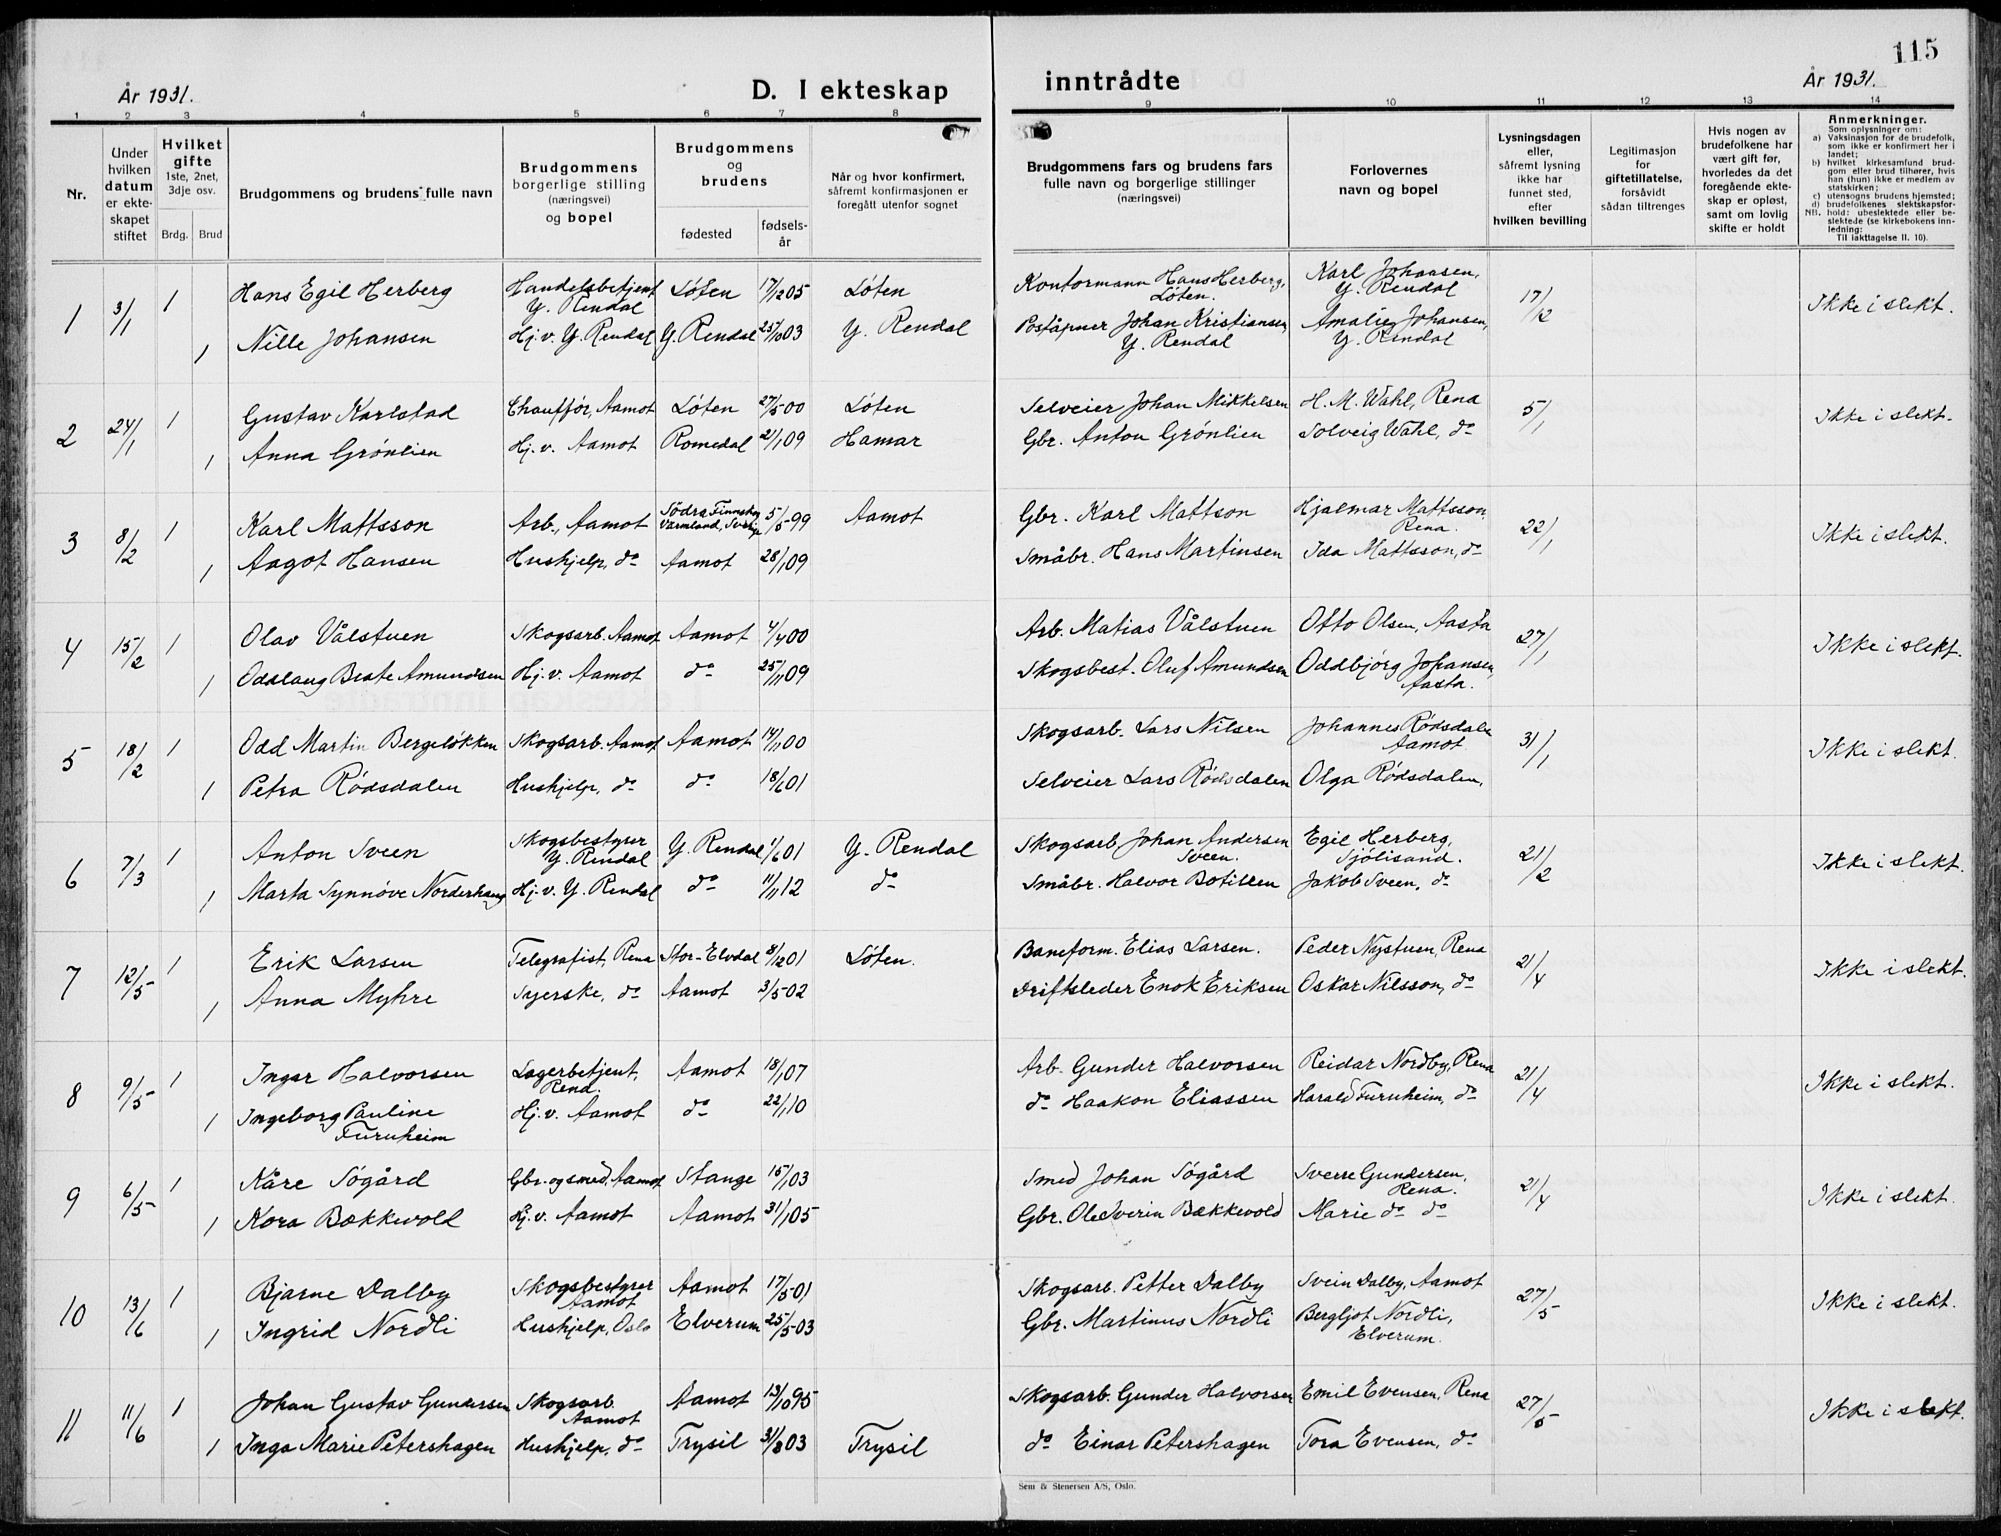 115
År 1931.
D. I ekteskap inntrådte
År 1931.
1 2 3 4 5 6 7 8 9 10 11 12 13 14
Nr.
Under hvilken datum er ekteskapet stiftet
Hvilket gifte 1ste, 2net, 3dje osv.
Brdg. Brud
Brudgommens og brudens fulle navn
Brudgommens borgerlige stilling (næringsvei) og bopel
Brudgommens og brudens
fødested
fødselsår
Når og hvor konfirmert, såfremt konfirmasjonen er foregått utenfor sognet
Brudgommens fars og brudens fars fulle navn og borgerlige stillinger (næringsvei)
Forlovernes navn og bopel
Lysningsdagen eller, såfremt lysning ikke har funnet sted, efter hvilken bevilling
Legitimasjon for giftetillatelse, forsåvidt sådan tiltrenges
Hvis nogen av brudefolkene har vært gift før, hvorledes da det foregående ekteskap er opløst, samt om lovlig skifte er holdt
Anmerkninger.
Som oplysninger om:
a) Vaksinasjon for de brudefolk, som ikke er konfirmert her i landet;
b) hvilket kirkesamfund brudgom eller brud tilhører, hvis han (hun) ikke er medlem av statskirken;
c) utensogns brudens hjemsted;
d) brudefolkenes slektskapsforhold: ubeslektede eller beslektede (se kirkebokens innledning:
NB.
Til iakttagelse II. 10).
1 3/1 1 Hans Egil Herberg Handelsbetjent Y. Rendal Löten 17/12 05 Löten Kontormann Hans Herberg, Löten. Karl Johansen, Y. Rendal 17/12 Ikke i slekt.
1 Nille Johansen Hj. v. Y. Rendal Y. Rendal 25/10 03 Y. Rendal Poståpner Johan Kristiansen, Y. Rendal Amalie Johansen, Y. Rendal
2 24/1 1 Gustav Karlstad Chauffør, Aamot Löten 27/5 00 Löten Selveier Johan Mikkelsen H. M. Wahl, Rena 5/1 Ikke i slekt.
1 Anna Grönlien Hj. v. Aamot Romedal 21/1 09 Hamar Gbr. Anton Grönlien Solveig Wahl, do
3 8/2 1 Karl Mattsson Arb., Aamot Södra Finnskog Värmland, Sverige 5/5 99 Aamot Gbr. Karl Mattson Hjalmar Mattsson, Rena. 22/1 Ikke i slekt.
1 Aagot Hansen Hushjelp, do Aamot 28/1 09 Småbr. Hans Martinsen Ida Mattsson, do
4 15/2 1 Olav Vålstuen Skogsarb. Aamot Aamot 4/4 00 Arb. Matias Vålstuen Otto Olsen, Aasta 27/1 Ikke i slekt.
1 Oddlaug Beate Amundsen Hj. v. Aamot do 25/11 09 Skogsbest. Oluf Amundsen Oddbjörg Johansen, Aasta.
5 18/2 1 Odd Martin Bergelökken Skogsarb. Aamot Aamot 14/11 00 Skogsarb. Lars Nilsen Johannes Rödsdalen Aamot 31/1 Ikke i slekt.
1 Petra Rödsdalen Hushjelp, do do 18/6 01 Selveier Lars Rödsdalen Olga Rödsdalen,
6 7/3 1 Anton Sveen Skogsbestyrer Y. Rendal Y. Rendal 1/6 01 Y. Rendal Skogsarb. Johan Andersen Sveen. Egil Herberg, Sjölisand. 21/2 Ikke i slekt.
1 Marta Synnöve Norderhaug Hj. v. Y. Rendal do 11/11 12 do Småbr. Halvor Botillen Jakob Sveen, do
7 12/5 1 Erik Larsen Telegrafist, Rena Stor-Elvdal 8/12 01 Löten. Baneform. Elias Larsen. Peder Nystuen, Rena 21/4 Ikke i slekt.
1 Anna Myhre Syerske, do Aamot 3/5 02 Driftsleder Enok Eriksen Oskar Nilsson, do
8 9/5 1 Ingar Halvorsen Lagerbetjent, Rena. Aamot 18/1 07 Arb. Gunder Halvorsen Reidar Nordby, Rena 21/4 Ikke i slekt.
1 Ingeborg Pauline Furuheim Hj. v. Aamot do 22/1 10 do Haakon Eliassen Harald Furuheim, do
9 6/5 1 Kåre Sögård Gbr. og smed, Aamot Stange 15/1 03 Smed Johan Sögård Sverre Gundersen, Rena. 21/4 Ikke i slekt.
1 Kora Bækkevold Hj. v. Aamot Aamot 31/1 05 Gbr. Ole Sverin Bækkevold Marie do do
10 13/6 1 Bjarne Dalby Skogsbestyrer Aamot Aamot 17/5 01 Skogsarb. Petter Dalby Svein Dalby, Aamot 27/5 Ikke i slekt.
1 Ingrid Nordli Hushjelp, Oslo Elverum 25/5 03 Gbr. Martinus Nordli Bergljot Nordli, Elverum.
11 11/6 1 Johan Gustav Gundersen Skogsarb. Aamot Aamot 13/10 95 Skogsarb. Gunder Halvorsen Emil Evensen, Rena 27/5 Ikke i slekt.
1 Inga Marie Petershagen Hushjelp, do Trysil 31/8 03 Trysil do Einar Petershagen Tora Evensen, do
Sem & Stenersen A/S, Oslo.